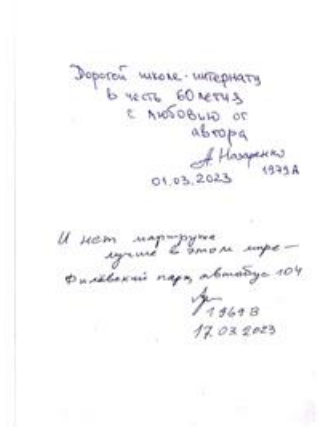 Дорогой школе-интернату
в честь 60 летия
с любовью от
автора
А. Назаренко
1979А
01.03.2023
И нет маршрута
лучше в этом мире –
Филёвский парк, автобус 104
1969 В
17.03.2023